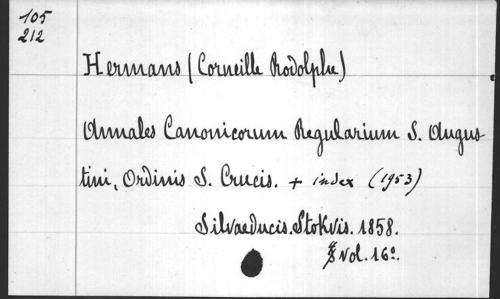 105
212
Hermans (Corneille Rodolphe)
Annales Canonicorum Regularium S. Augus-
tini, Ordinis S. Crucis. + index (1953)
Silvaeducis. Stokvis. 1858.
vol. 16°.